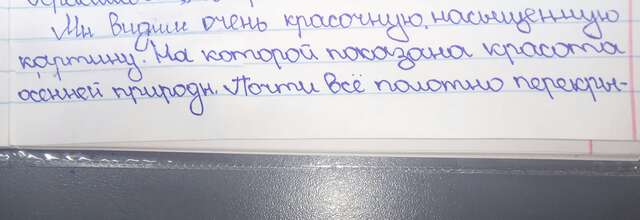 Мы видим очень красочную, насыщенную
картину. На которой показана красота
осенней природы. Почти всё полотно перекры-